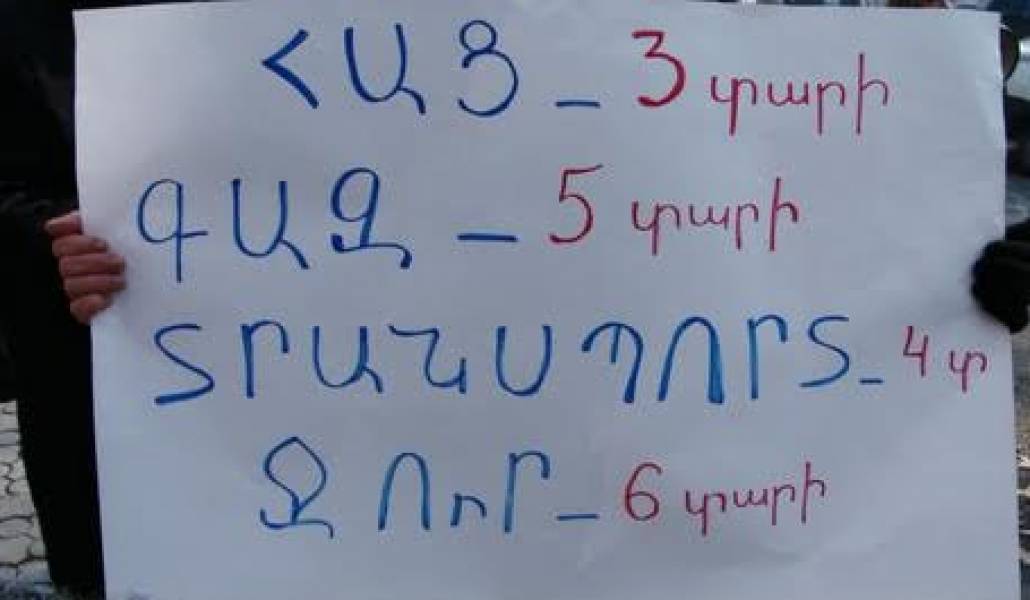 ՀԱՑ - 3 տարի
ԳԱԶ - 5 տարի
ՏՐԱՆՍՊՈՐՏ - 4 տ
ՋՈւՐ - 6 տարի